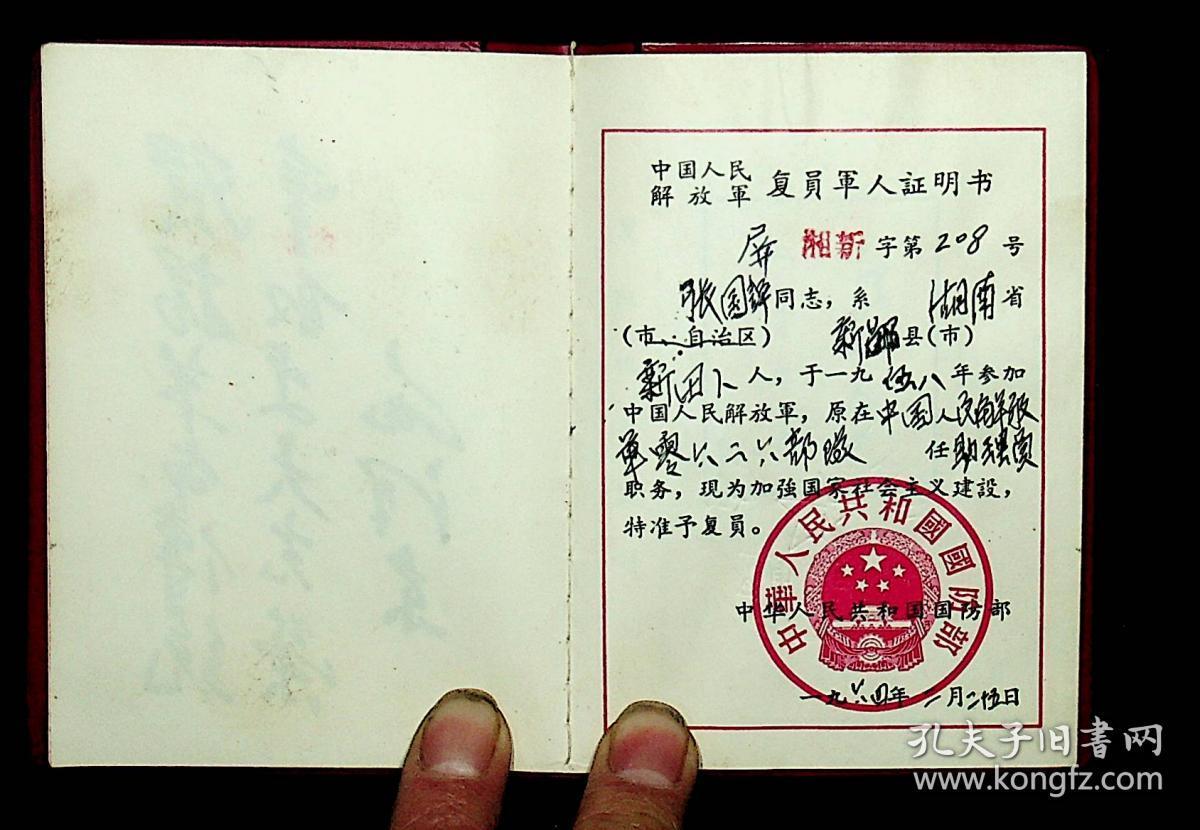 中国人民
解放軍 复員軍人証明书
屏 湘新 字第 208 号
张国辉同志，系 湖南省
（市、自治区） 新邵县（市）
新田卜人，于一九伍八年参加
中国人民解放軍，原在中国人民解放
軍零六二六部隊 任助理員
职务，現为加強国家社会主义建設，
特准予复員。
中华人民共和国国防部
中華人民共和國國防部
一九六四年二月二五日
孔夫子旧書网
www.kongfz.com